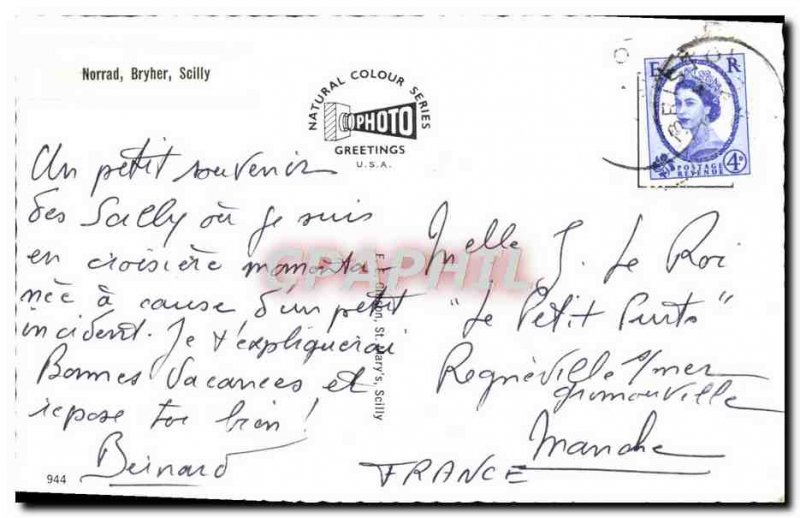 Norrad, Bryher, Scilly
NATURAL COLOUR SERIES
PHOTO
GREETINGS
U.S.A.
E R
POSTAGE
REVENUE
4D
Un petit souvenir
des Scilly où je suis
en croisière momenta-
née à cause d'un petit
incident. Je t'expliquerai
Bonnes Vacances et
repose toi bien!
Bernard
944
St. Mary's, Scilly
CPAPHIL
Melle J. Le Roi
"Le Petit Ponts"
Regnéville s/mer
Grimouville
Manche
FRANCE